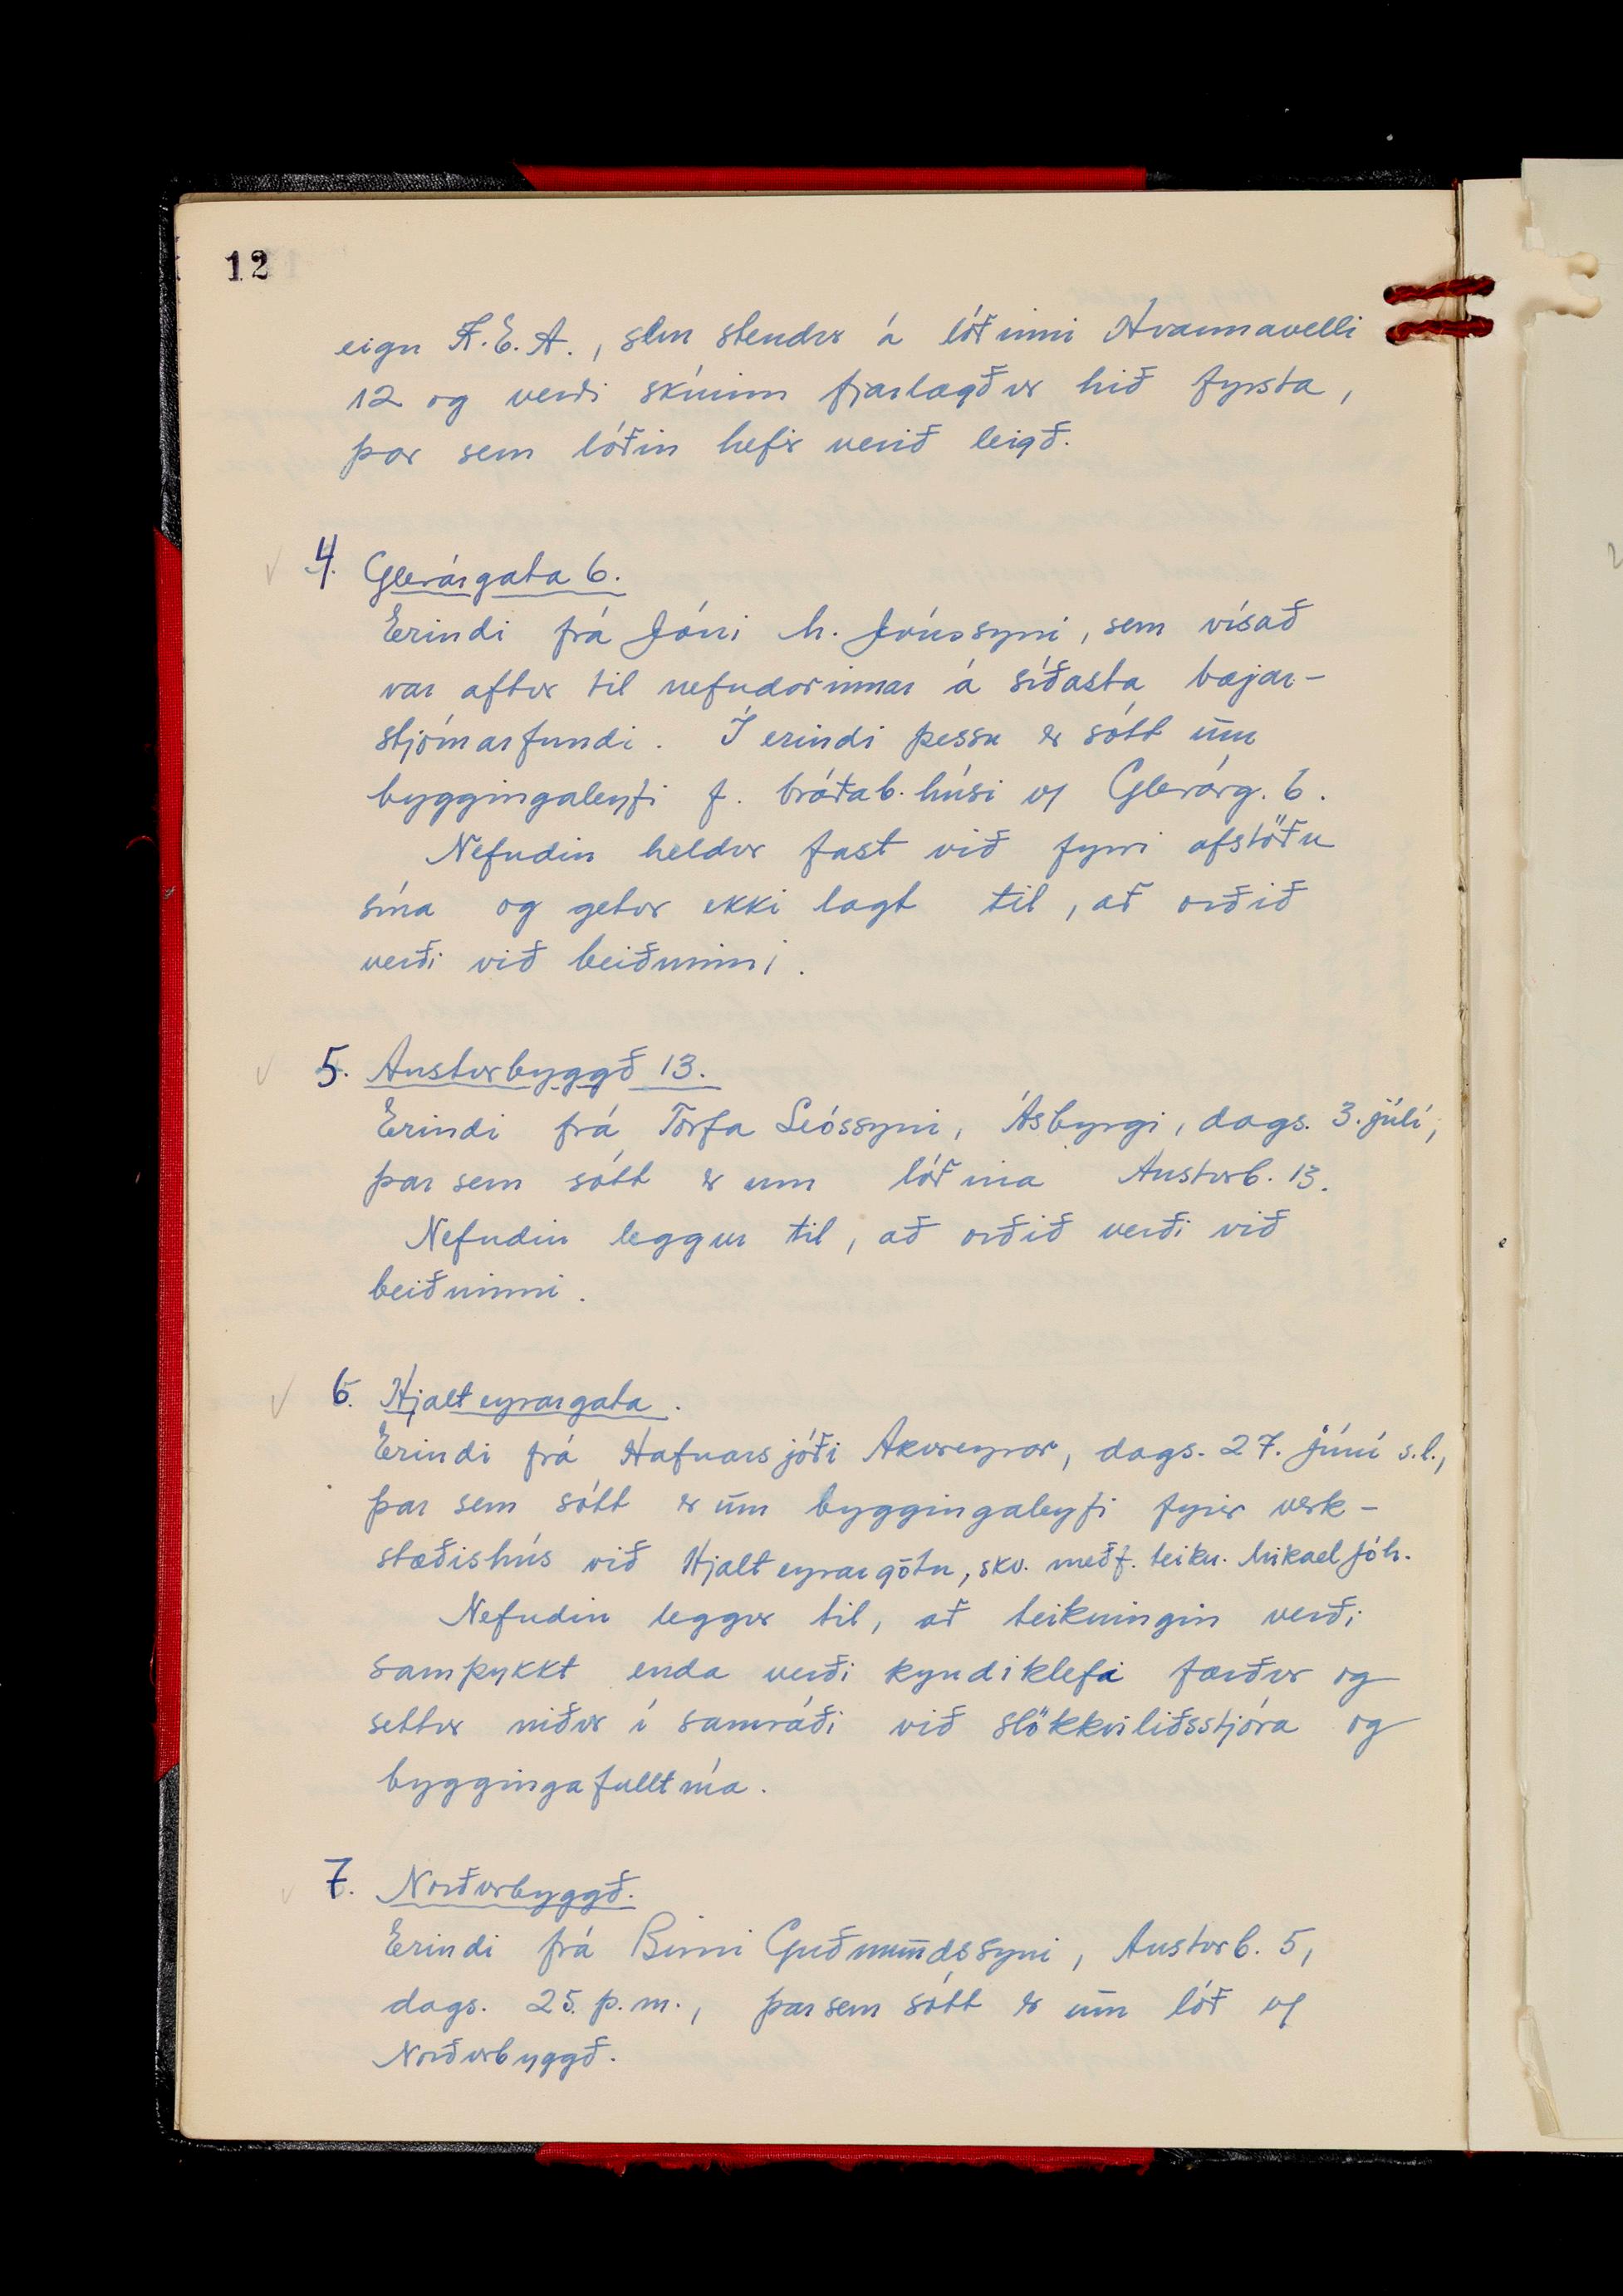 12
eign K.E.A., sem stendur á lóðinni Hvannavelli
12 og verði skúrinn fjarlægður hið fyrsta,
þar sem lóðin hefir verið leigð.
4. Glerárgata 6.
Erindi frá Jóni M. Jónssyni, sem vísað
var aftur til nefndarinnar á síðasta bæjar-
stjórnarfundi. Í erindi þessu er sótt um
byggingaleyfi f. bráðab. húsi v/ Glerárg. 6.
Nefndin heldur fast við fyrri afstöðu
sína og getur ekki lagt til, að orðið
verði við beiðninni.
5. Austurbyggð 13.
Erindi frá Torfa Leóssyni, Ásbyrgi, dags. 3. júlí,
þar sem sótt er um lóðina Austurb. 13.
Nefndin leggur til, að orðið verði við
beiðninni.
6. Hjalteyrargata.
Erindi frá Hafnarsjóði Akureyrar, dags. 27. júní s.l.,
þar sem sótt er um byggingaleyfi fyrir verk-
stæðishús við Hjalteyrargötu, skv. meðf. teikn. Mikael Jóh.
Nefndin leggur til, að teikningin verði
samþykkt enda verði kyndiklefi færður og
settur niður í samráði við slökkviliðsstjóra og
byggingafulltrúa.
7. Norðurbyggð.
Erindi frá Birni Guðmundssyni, Austurb. 5,
dags. 25. þ.m., þar sem sótt er um lóð v/
Norðurbyggð.